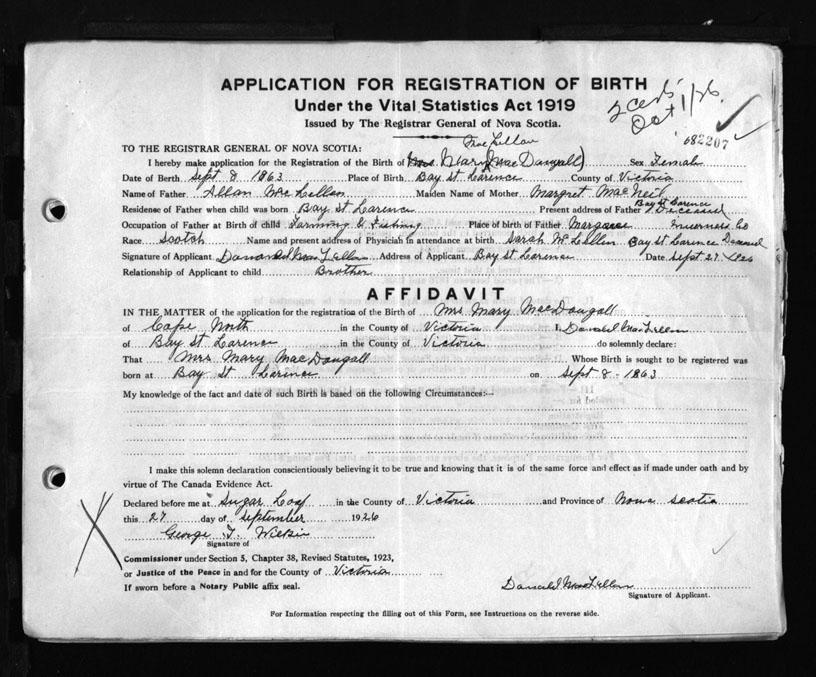 APPLICATION FOR REGISTRATION OF BIRTH
Under the Vital Statistics Act 1919
Issued by The Registrar General of Nova Scotia.
2 certs
Oct 1/26.
682207
TO THE REGISTRAR GENERAL OF NOVA SCOTIA:
MacLellan
I hereby make application for the Registration of the Birth of (Mrs Mary MacDougall) Sex Female
Date of Birth Sept 8 1863 Place of Birth Bay St Larence County of Victoria
Name of Father Allan MacLellan Maiden Name of Mother Margret MacNeil
Bay St Larence
Residense of Father when child was born Bay St Larence Present address of Father Deceased
Occupation of Father at Birth of child Farming & Fishing Place of birth of Father Margaree Inverness Co
Race Scotch Name and present address of Physiciah in attendance at birth Sarah McLellan Bay St Larence Deceased
Signature of Applicant Donald MacLellan Address of Applicant Bay St Larence Date Sept 27 1926
Relationship of Applicant to child Brother
AFFIDAVIT
IN THE MATTER of the application for the registration of the Birth of Mrs Mary MacDougall
of Cape North in the County of Victoria I, Donald MacLellan
of Bay St Larence in the County of Victoria do solemnly declare:
That Mrs Mary MacDougall Whose Birth is sought to be registered was
born at Bay St Larence on Sept 8 - 1863
My knowledge of the fact and date of such Birth is based on the following Circumstances:—
I make this solemn declaration conscientiously believing it to be true and knowing that it is of the same force and effect as if made under oath and by
virtue of The Canada Evidence Act.
Declared before me at Sugar Loaf in the County of Victoria and Province of Nova Scotia
this 27 day of September 1926
George T. Wilkie
Signature of
Commissioner under Section 5, Chapter 38, Revised Statutes, 1923,
or Justice of the Peace in and for the County of Victoria
If sworn before a Notary Public affix seal.
Donald MacLellan
Signature of Applicant.
For Information respecting the filling out of this Form, see Instructions on the reverse side.